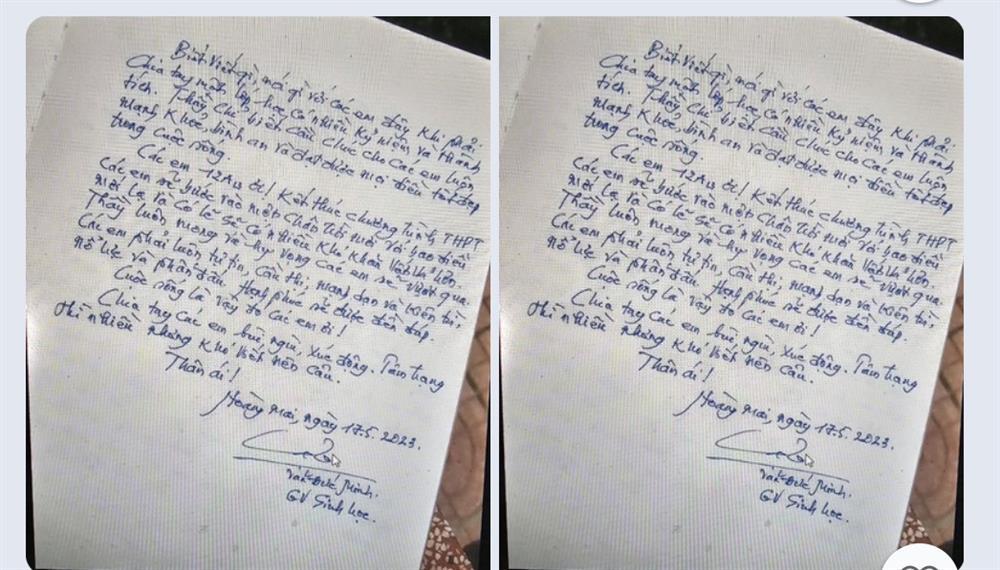 Biết viết gì, nói gì với các em đây khi phải
Chia tay một lớp học có nhiều kỷ niệm và thành
tích. Thầy chỉ biết cầu chúc cho các em luôn
mạnh khỏe, bình an và đạt được mọi điều tốt đẹp
trong cuộc sống.
Các em ơi! Kết thúc chương trình THPT
Các em sẽ bước vào một chân trời mới với bao điều
mới lạ và có lẽ sẽ có nhiều khó khăn hơn.
Thầy luôn mong và hy vọng các em sẽ vượt qua.
Các em phải luôn tự tin, mạnh dạn và kiên trì,
nỗ lực và phấn đấu. Hạnh phúc sẽ được đền đáp.
Cuộc sống là vậy đó các em ơi!
Chia tay các em bùi ngùi, xúc động. Tâm trạng
thì nhiều nhưng khó viết nên câu.
Thân ái!
Hoàng Mai, ngày 17.5.2023.
Đức Minh.
GV Sinh học.
Biết viết gì, nói gì với các em đây khi phải
Chia tay một lớp học có nhiều kỷ niệm và thành
tích. Thầy chỉ biết cầu chúc cho các em luôn
mạnh khỏe, bình an và đạt được mọi điều tốt đẹp
trong cuộc sống.
Các em ơi! Kết thúc chương trình THPT
Các em sẽ bước vào một chân trời mới với bao điều
mới lạ và có lẽ sẽ có nhiều khó khăn hơn.
Thầy luôn mong và hy vọng các em sẽ vượt qua.
Các em phải luôn tự tin, mạnh dạn và kiên trì,
nỗ lực và phấn đấu. Hạnh phúc sẽ được đền đáp.
Cuộc sống là vậy đó các em ơi!
Chia tay các em bùi ngùi, xúc động. Tâm trạng
thì nhiều nhưng khó viết nên câu.
Thân ái!
Hoàng Mai, ngày 17.5.2023.
Đức Minh.
GV Sinh học.